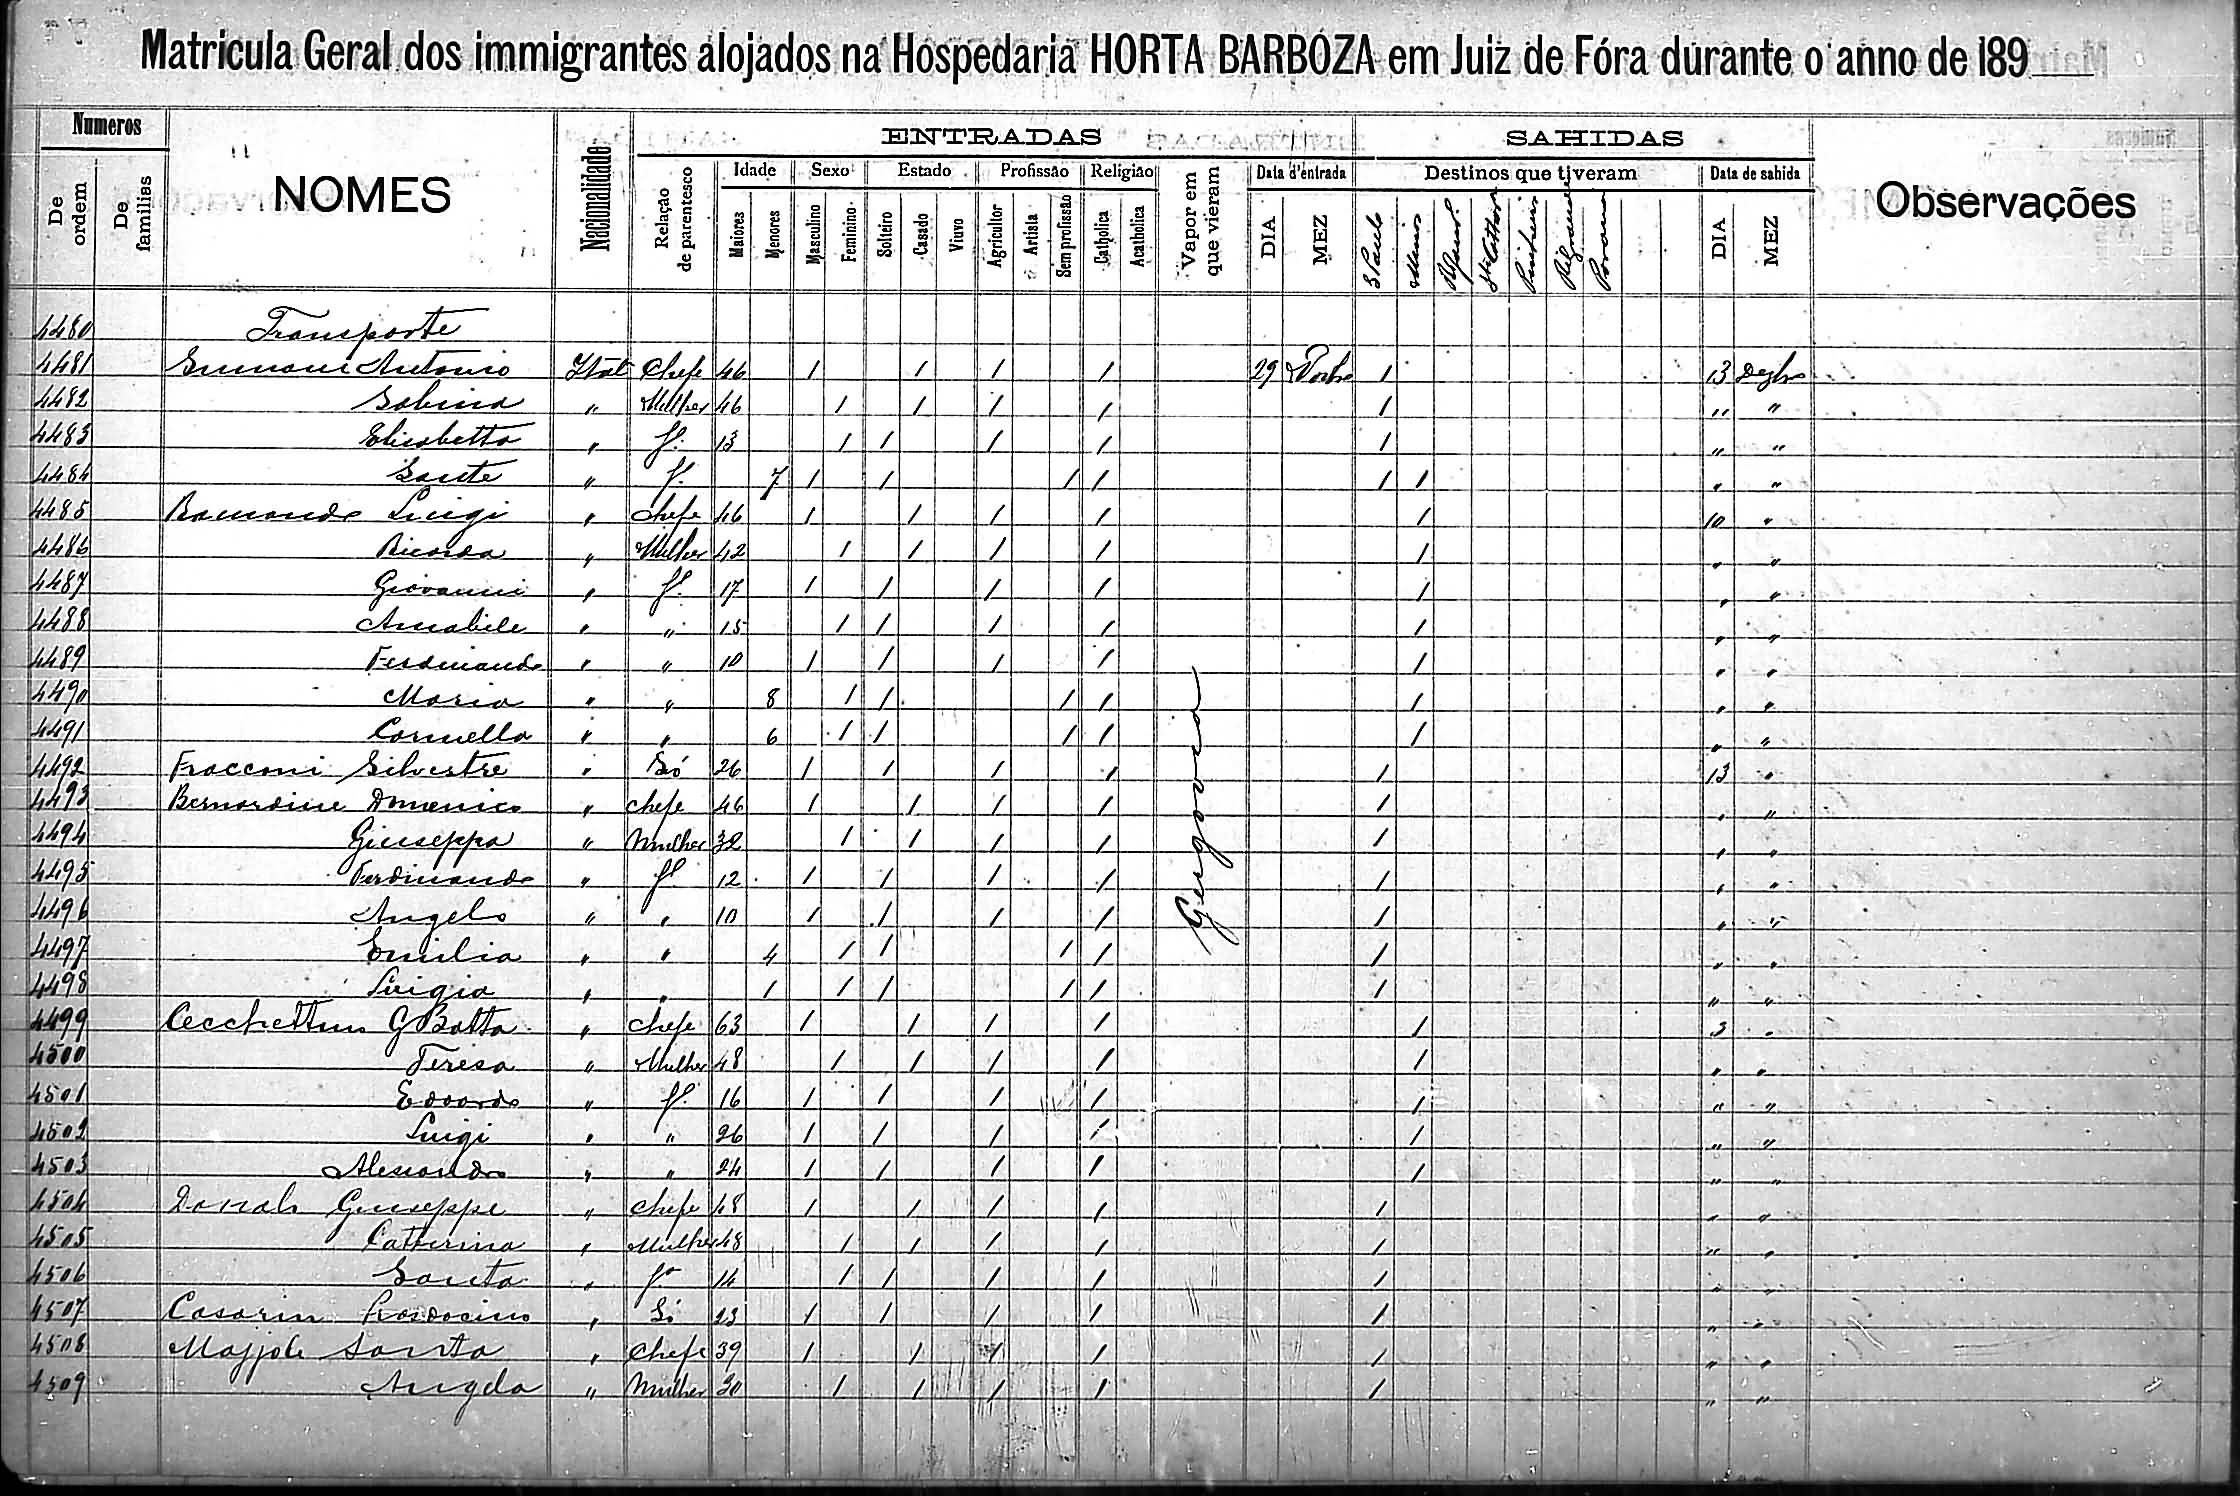 Matricula Geral dos immigrantes alojados na Hospedaria HORTA BARBOZA em Juiz de Fóra durante o anno de 189
Numeros NOMES Nacionalidade ENTRADAS SAHIDAS Observações
De ordem De familias Relação de parentesco Idade Sexo Estado Profissão Religião Vapor em que vieram Data d'entrada Destinos que tiveram Data de sahida
Maiores Menores Masculino Feminino Solteiro Casado Viuvo Agricultor Artista Sem profissão Catholica Acatholica DIA MEZ S Paulo Minas DIA MEZ
4480 Transporte
4481 Antonio Ital Chefe 46 1 1 1 1 29 1 13 Dezbro
4482 Sabina " Mulher 46 1 1 1 1 1 " "
4483 Elisabetta " f. 13 1 1 1 1 1 " "
4484 Sante " f. 7 1 1 1 1 1 1 " "
4485 Ramondo Luigi " Chefe 46 1 1 1 1 1 10 "
4486 Ricarda " Mulher 42 1 1 1 1 1 " "
4487 Giovanni " f. 17 1 1 1 1 1 " "
4488 Amabile " " 15 1 1 1 1 1 " "
4489 Ferdinando " " 10 1 1 1 1 1 " "
4490 Maria " " 8 1 1 1 1 1 " "
4491 Carmella " " 6 1 1 1 1 1 " "
4492 Fracconi Silvestre " Só 26 1 1 1 1 1 13 "
4493 Bernardine Domenico " chefe 46 1 1 1 1 1 " "
4494 Giuseppa " Mulher 32 1 1 1 1 1 " "
4495 Ferdinando " f. 12 1 1 1 1 1 " "
4496 Angelo " " 10 1 1 1 1 1 " "
4497 Emilia " " 4 1 1 1 1 1 " "
4498 Luigia " " 1 1 1 1 1 1 " "
4499 G Batta " chefe 63 1 1 1 1 1 3 "
4500 Teresa " Mulher 48 1 1 1 1 1 " "
4501 Edoardo " f. 16 1 1 1 1 1 " "
4502 Luigi " " 26 1 1 1 1 1 " "
4503 Alessandro " " 24 1 1 1 1 1 " "
4504 Giuseppe " chefe 48 1 1 1 1 1 " "
4505 Catterina " Mulher 48 1 1 1 1 1 " "
4506 Santa " fa 14 1 1 1 1 1 " "
4507 Casarin Prosdocimo " Só 23 1 1 1 1 1 " "
4508 Santo " Chefe 39 1 1 1 1 1 " "
4509 Angela " Mulher 30 1 1 1 1 1 " "
Gergovia